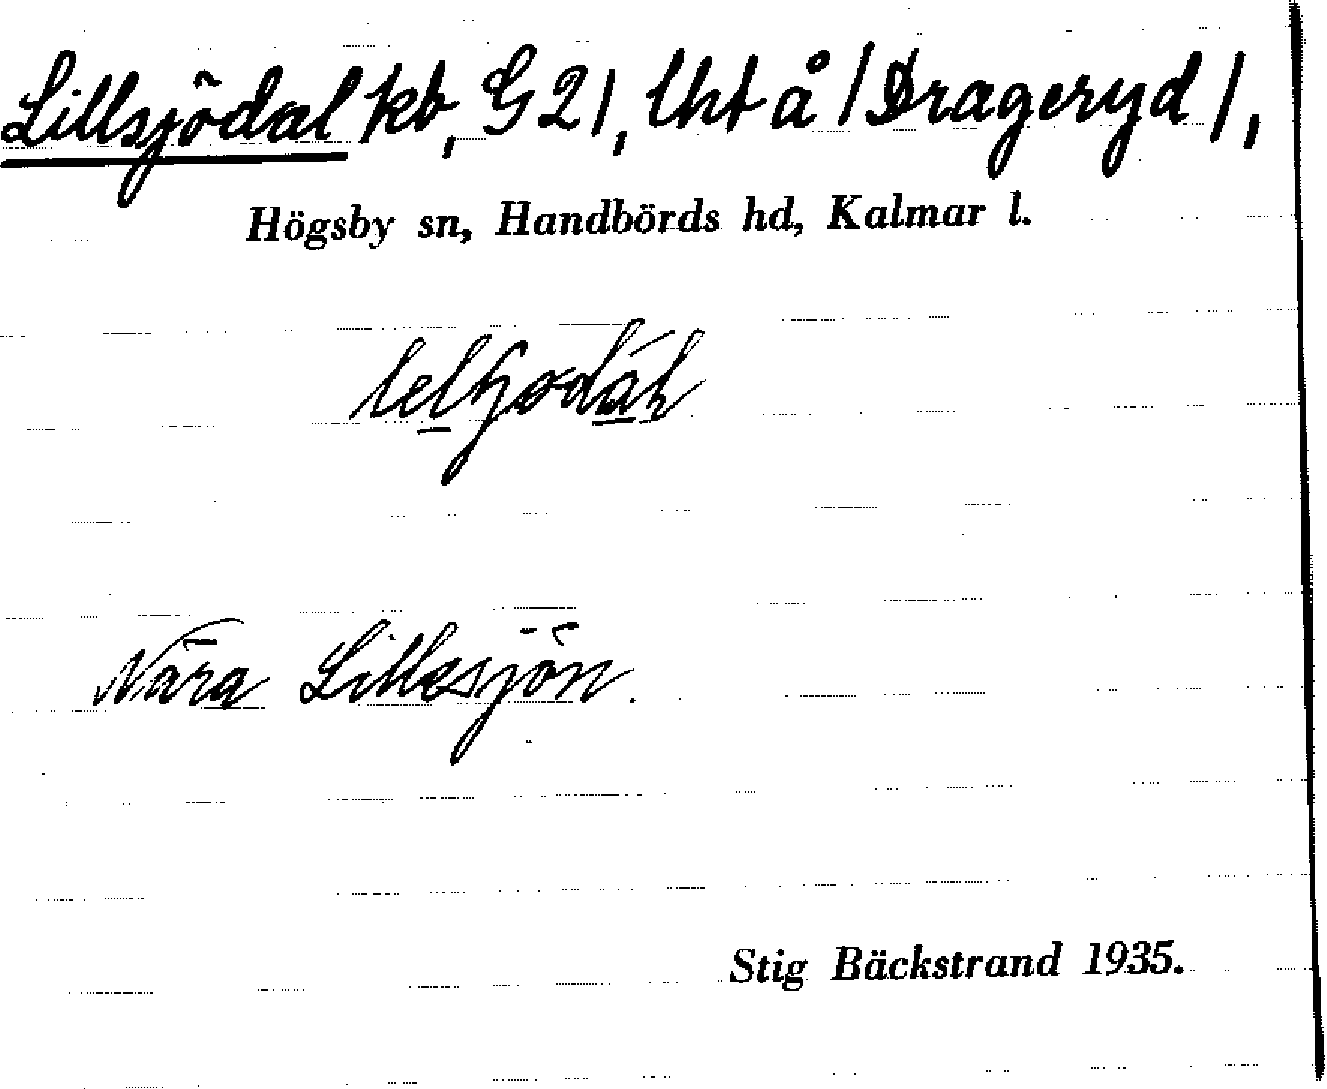 Lillsjödal kb, G2/, Uht å /Drageryd/,
Högsby sn, Handbörds hd, Kalmar l.
Nära Lillesjön.
Stig Bäckstrand 1935.